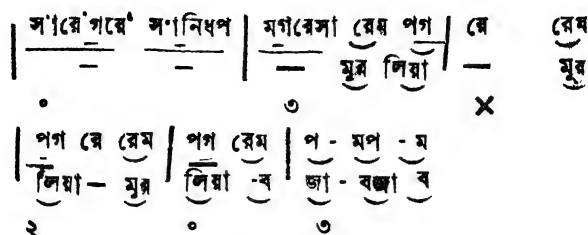 | সা́রে́গরে́ সাঁনিধপ | মগরেসা রেম পগ | রে রেম
— — — মুর লিয়া — মুর
০ ৩ ×
| পগ রে রেম | পগ রেম | প - মপ - ম
লিয়া — মুর লিয়া -ব জা - বজা ব
২ ০ ৩